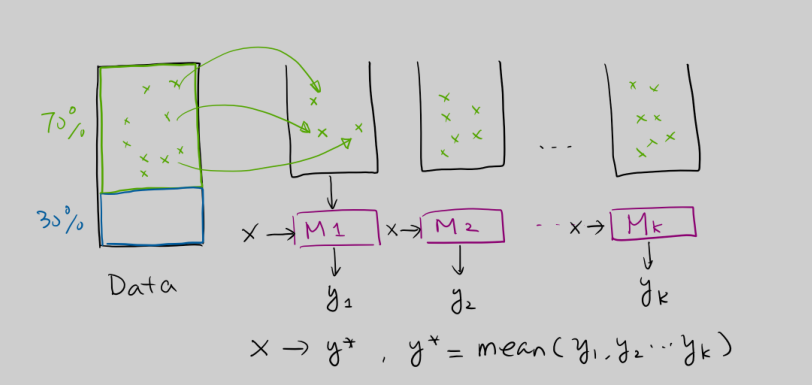 70%
30%
Data
...
X → M1 X → M2 ... X → Mk
y1 y2 yk
X → y*, y* = mean(y1, y2 ... yk)